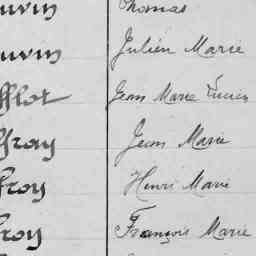 uvin Thomas
uvin Julien Marie
fflot Jean Marie Lucien
ffray Jean Marie
froy Henri Marie
froy François Marie